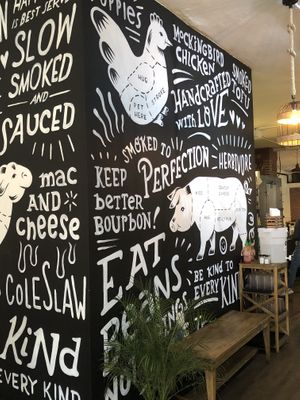 IS BEST SERVED
SLOW
SMOKED
AND
SAUCED
mac
AND
cheese
COLESLAW
KIND
EVERY KIND
PUPPIES
HUG
PET
HERE
MOCKINGBIRD
CHICKEN
SMOKED
TOFU
HANDCRAFTED
WITH LOVE
SMOKED TO
PERFECTION
HERBIVORE
KEEP
better
BOURBON!
EAT
BEANS
NO
BE KIND TO
EVERY KIND